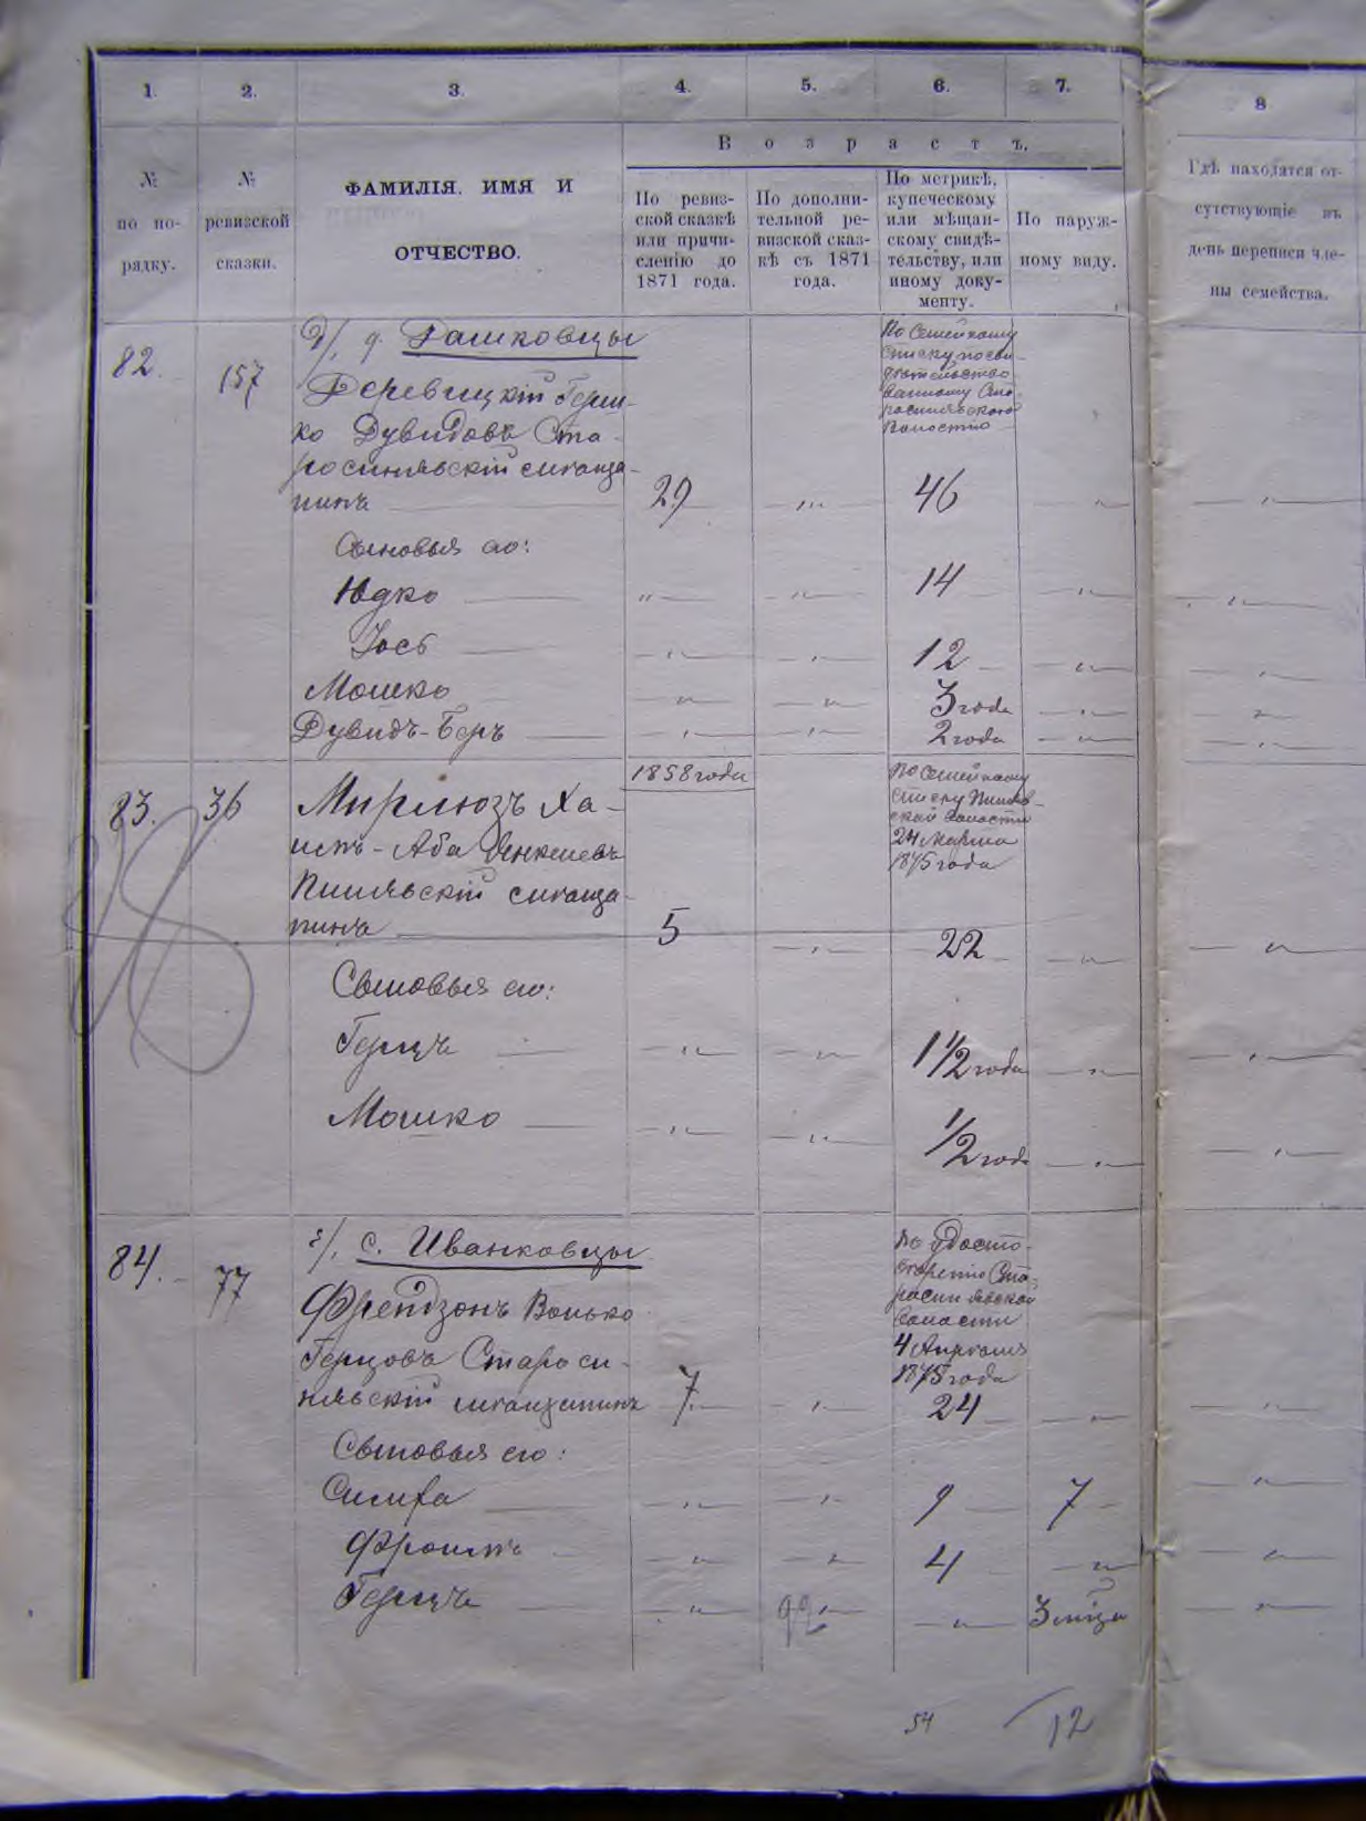 1. 2. 3. 4. 5. 6. 7. 8
№ по по-рядку.
№ ревизской сказки.
ФАМИЛІЯ. ИМЯ И
ОТЧЕСТВО.
Возрастъ.
По ревиз-
ской сказкѣ
или причи-
сленію до
1871 года.
По дополни-
тельной ре-
визской сказ-
кѣ съ 1871
года.
По метрикѣ,
купеческому
или мѣщан-
скому свидѣ-
тельству, или
иному доку-
менту.
По наруж-
ному виду.
Гдѣ находятся от-
сутствующіе въ
день переписи чле-
ны семейства.
д/, д. Дашковцы
82. 157
Деревицкій Герш-
ко Дувидовъ Ста-
росинявскій мѣща-
нинъ 29 46
По Семейному
списку
Сыновья его:
Юдко 14
Іось 12
Мошко 3 года
Дувидъ-Беръ 2 года
83. 36
1858 года
Мирмюзъ Ха-
имъ-Аба Янкелевъ
Пилявскій мѣща-
нинъ 5 22
По Семейному
списку Пиляв-
ской волости
24 Марта
1875 года
Сыновья его:
Герцъ 1 1/2 года
Мошко 1/2 года
84. 77
г/, с. Иванковцы
Френдзонъ Волько
Герцовъ Староси-
нявскій мѣщанинъ 7 24
По удосто-
вѣренію Ста-
росинявской
волости
4 Апрѣля
1875 года
Сыновья его:
Симха 9 7
Фроимъ 4
Герцъ 3 мѣца
92
54 12